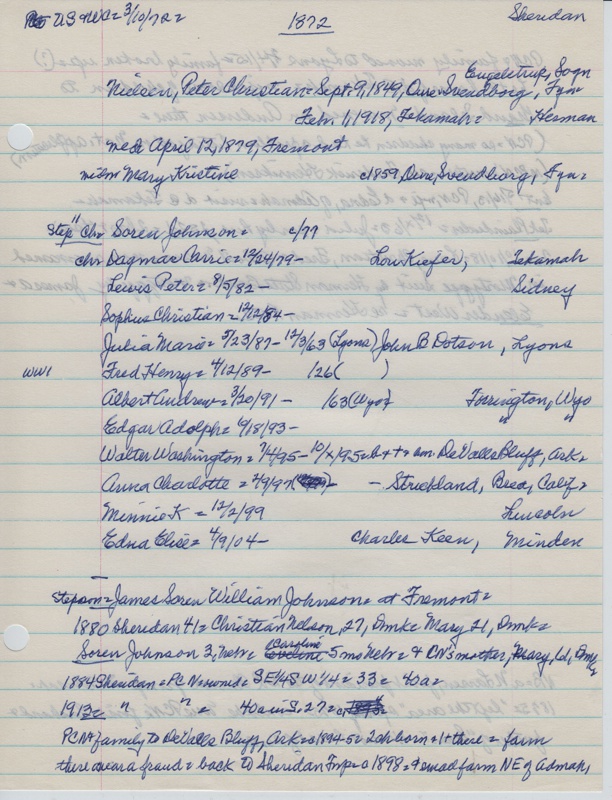 US & Nc = 3/10/72 = 1872 Sheridan
Engelstrup, Sogn
Nielsen, Peter Christian = Sept. 9, 1849, Oure Svendborg, Fyn =
Feb. 1, 1918, Tekamah = Herman
md = April 12, 1879, Fremont
Mary Kristine c1859, Oure, Svendborg, Fyn =
Step" chr Soren Johnson = c/77
chr Dagmar Carrie = 12/24/79 - Lou Kiefer, Tekamah
Lewis Peter = 8/5/82 - Sidney
Sophus Christian = 12/12/84 -
Julia Marie = 5/23/87 - 12/3/63 (Lyons) John B Dotson, Lyons
WW1 Fred Henry = 4/12/89 - 126( )
Albert Andrew = 3/20/91 - /63 (Wyo) Torrington, Wyo
Edgar Adolph = 6/18/93 - " "
Walter Washington = 7/4/95 - 10/x/95 = b + + = am DeValls Bluff, Ark =
Anna Charlotte = 2/9/97 - - Strickland, Brea, Calif =
Minnie K = 12/2/99 Lincoln
Edna Elise = 4/9/04 - Charles Keen, Minden
Stepson = James Soren William Johnson = at Fremont =
1880 Sheridan 41 = Christian Nelson, 27, Dmk = Mary 21, Dmk =
Soren Johnson 3, Nebr = Caroline 5 mo Nebr = & CN's mother, Mary, 61, Dmk
1884 Sheridan = PC N owned = SE¼SW¼ = 33 = 40a =
1913 = " " = 40a in S. 27 =
PCN & family to DeValls Bluff, Ark = c 1894-5 = 2 ch born = 1 + there = farm
there was a fraud = back to Sheridan Twp = c 1898 = & owned farm NE of Admah,